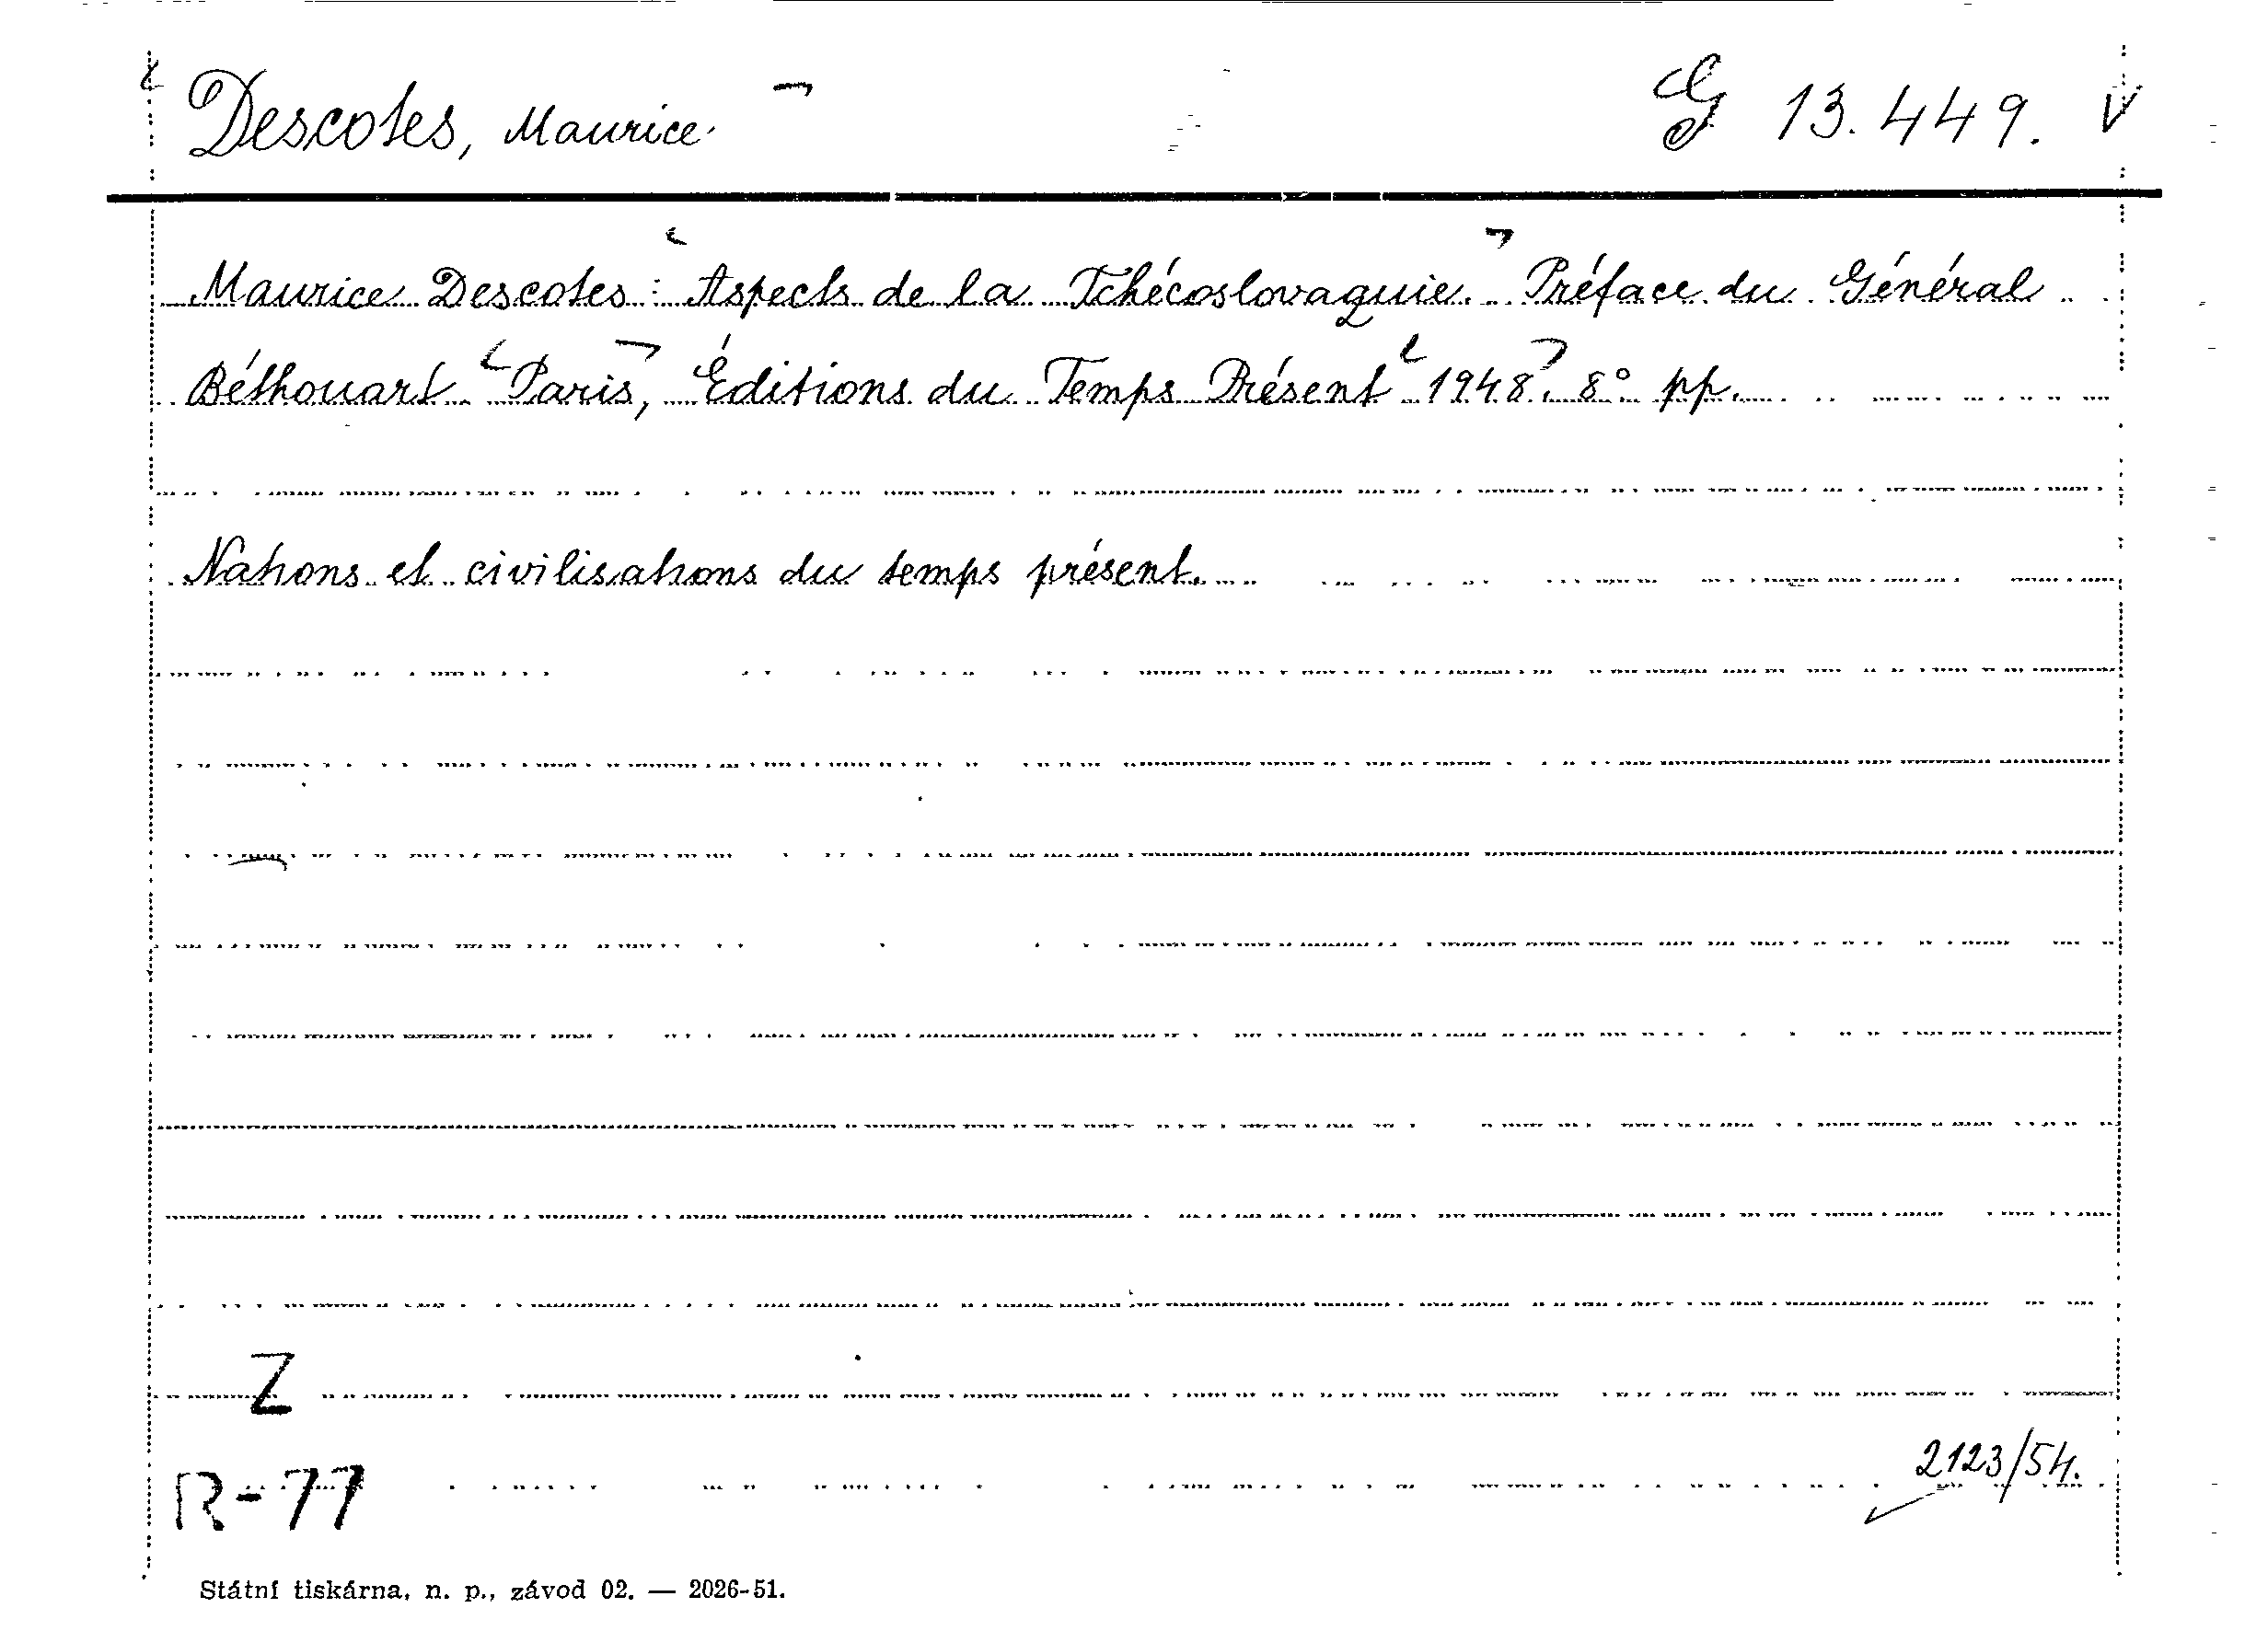 Descotes, Maurice G 13.449. V
Maurice Descotes: Aspects de la Tchécoslovaquie. Préface du Général
Béthouart. Paris, Éditions du Temps Présent 1948. 8° pp.
Nations et civilisations du temps présent.
Z
R-77
2123/54.
Státní tiskárna, n. p., závod 02. — 2026-51.